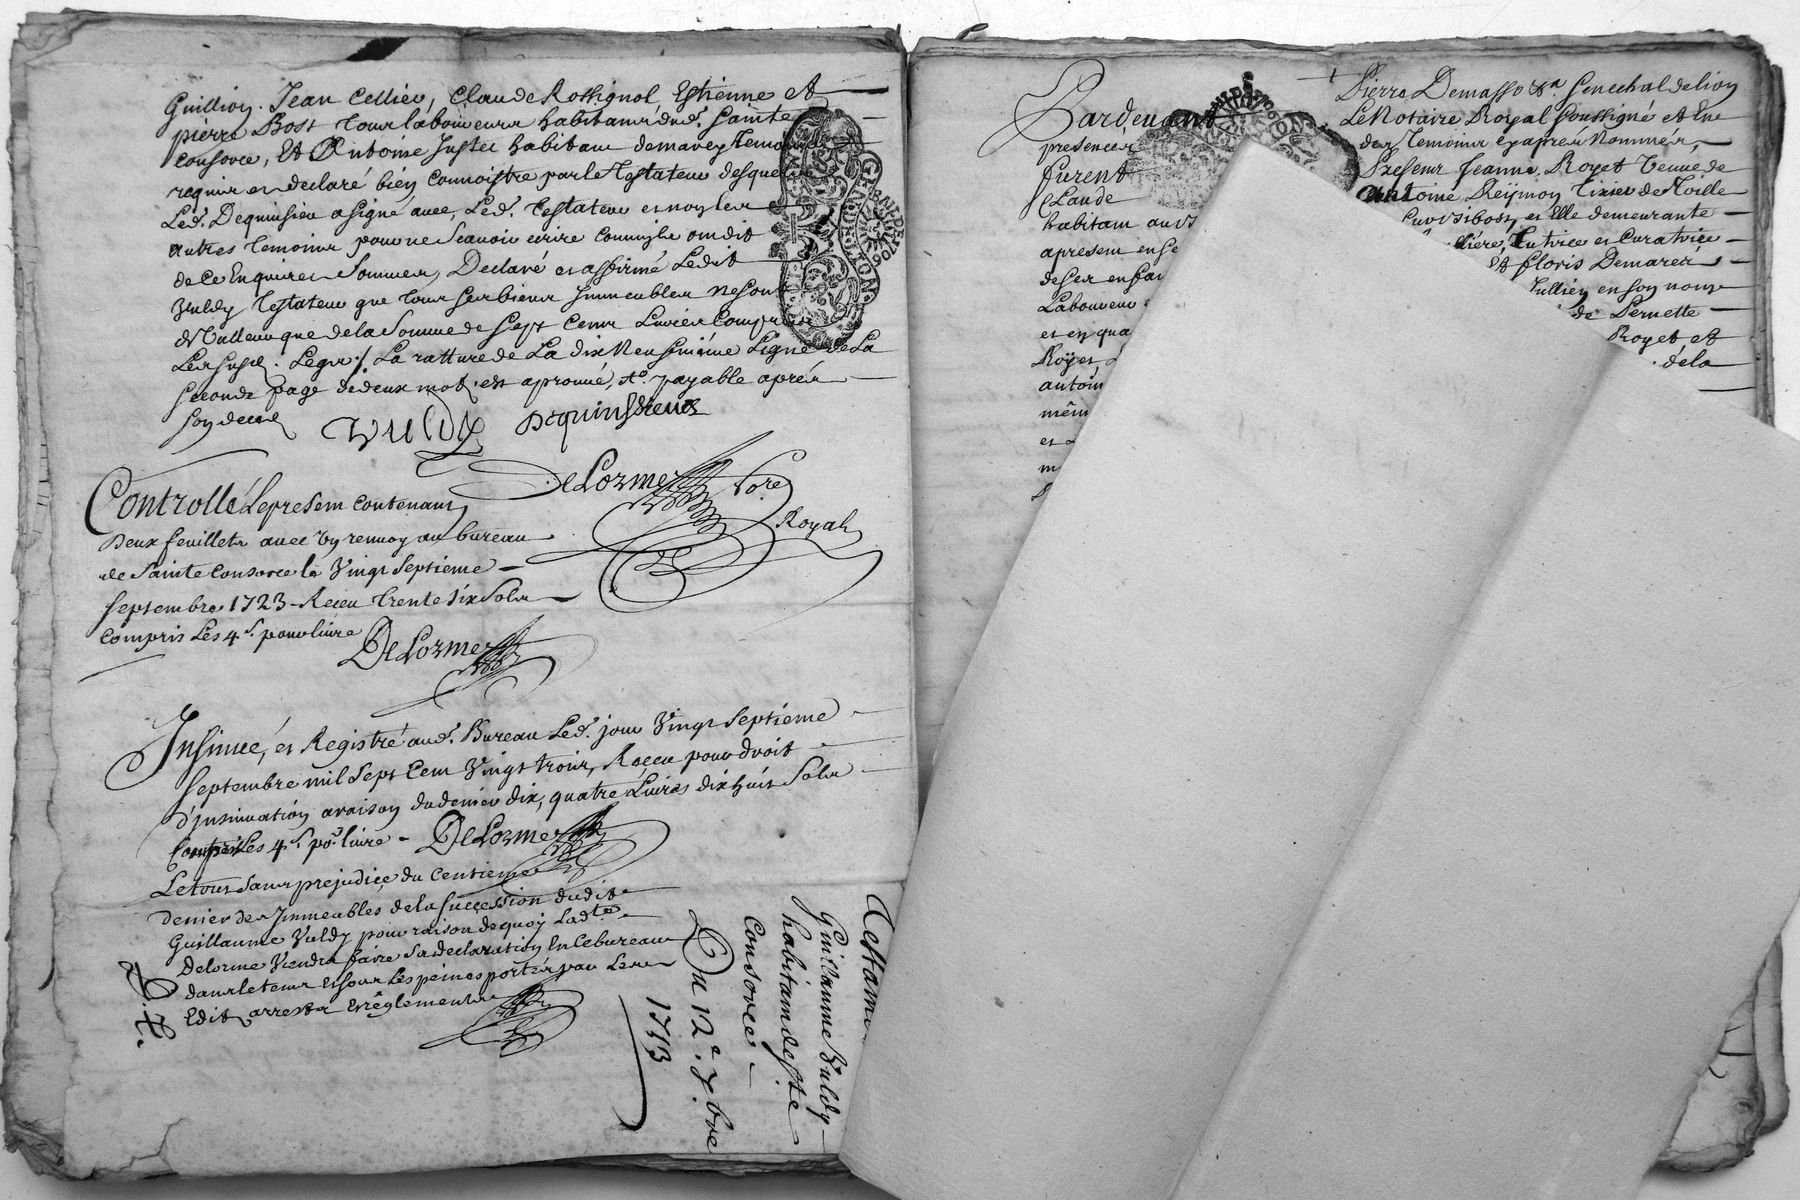 Guillion. Jean Cellier, Claude Rossignol, Estienne et
pierre Bost tous laboureurs habitans dud. Sainte
Consorce, Et Antoine Juster habitant de marcy Temoins
requis et declaré bien connoistre par le Testateur desquels
Led. Dequinsieu a signé avec, Led. Testateur et non les
autres temoins pour ne scavoir ecrire comme ils ont dit
de ce Enquis et Sommes, Declaré et affirmé Ledit
Vuldy Testateur que tous ses biens Immeubles ne sont
de Valleur que de la Somme de Sept Cent Livres Compris
Les susd. Legs ./. La ratture de La dix Neufvieme Ligne de La
Seconde page de deux mots est aprouvé, Et payable après
son deced
Vuldy Dequinssieux
DeLorme No.re
Royal
Controllé Le present contenant
Deux feuillets avec un renvoy au bureau
de Sainte Consorce le Vingt Septieme
Septembre 1723 - Receu trente six Sols
Compris Les 4 s. pour livre
DeLorme
Insinué, et Registré aud. Bureau Led. jour Vingt Septieme
Septembre mil Sept Cent Vingt trois, Receu pour droit
d'insinuation a raison du denier dix, quatre Livres dix huit Sols
Compris Les 4 s. po.r livre - DeLorme
Le tout sans prejudice du Centieme
denier des Immeubles de la Succession dudit
Guillaume Vuldy pour raison de quoy Lad.te
Delorme Viendra faire Sa declaration En ce bureau
dans le tems et sous Les peines portés par Les
Edits arrests et réglements
Testam
Guillaume Vuldy
habitant de Ste
Consorce
Du 12e. 7bre
1713
Pardevant
presences
furent
Claude
habitant au
apresent en
de ses enfan
Laboureur
et en qua
Royet
antoin
mêm
et
Pierre Demasso Senechal de lion
Le Notaire Royal Soussigné et En
des Temoins cy après Nommés,
Present Jeanne Royet Veuve de
Antoine Reymon Tixier de Toille
et Elle demeurante
Tutrice et Curatrice
Et floris Demarés
Jullien en son nom
de Pernette
Royet et
de la